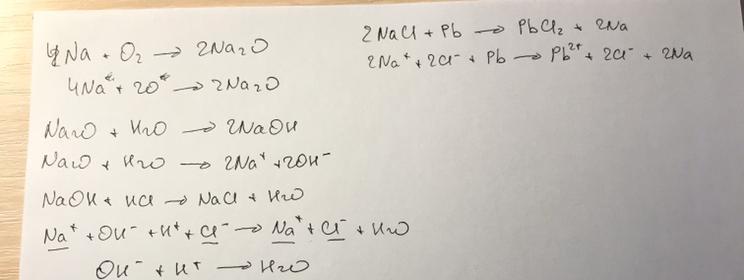 4Na + O₂ → 2Na₂O
4Na + 2O → 2Na₂O
Na₂O + H₂O → 2NaOH
Na₂O + H₂O → 2Na⁺ + 2OH⁻
NaOH + HCl → NaCl + H₂O
Na⁺ + OH⁻ + H⁺ + Cl⁻ → Na⁺ + Cl⁻ + H₂O
OH⁻ + H⁺ → H₂O
2NaCl + Pb → PbCl₂ + 2Na
2Na⁺ + 2Cl⁻ + Pb → Pb²⁺ + 2Cl⁻ + 2Na